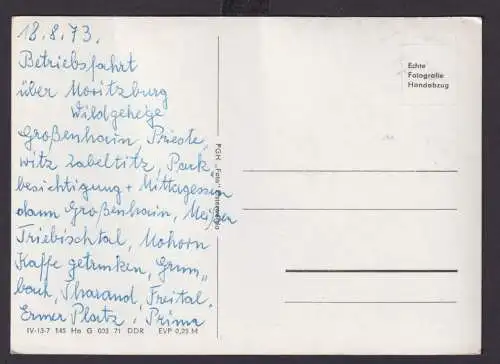 18.8.73.
Betriebsfahrt
über Moritzburg
Wildgehege
Großenhain, Prieste,
witz Zabeltitz, Park,
besichtigung + Mittagessen
dann Großenhain, Meißen
Triebischtal, Mohorn
Kaffe getrunken, Grum,
bach, Tharand, Freital.
Ermer Platz! Prima
IV-13-7 145 Ha G 003 71 DDR EVP 0,25 M
PGH „Foto"
Echte
Fotografie
Handabzug